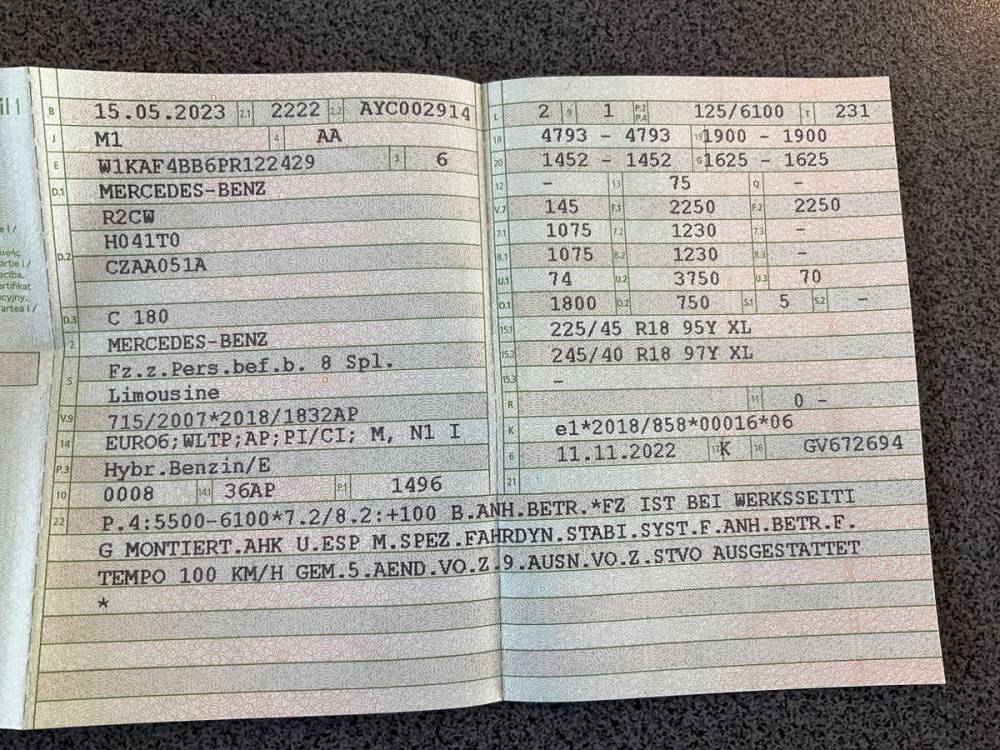 B 15.05.2023 2.1 2222 2.2 AYC002914
J M1 4 AA
E W1KAF4BB6PR122429 3 6
D.1 MERCEDES-BENZ
R2CW
D.2 H041T0
CZAA051A
D.3 C 180
2 MERCEDES-BENZ
5 Fz.z.Pers.bef.b. 8 Spl.
Limousine
V.9 715/2007*2018/1832AP
14 EURO6;WLTP;AP;PI/CI; M, N1 I
P.3 Hybr.Benzin/E
10 0008 14.1 36AP P.1 1496
L 2 9 1 P.2 P.4 125/6100 T 231
18 4793 - 4793 19 1900 - 1900
20 1452 - 1452 G 1625 - 1625
12 - 13 75 Q -
V.7 145 F.1 2250 F.2 2250
7.1 1075 7.2 1230 7.3 -
8.1 1075 8.2 1230 8.3 -
U.1 74 U.2 3750 U.3 70
O.1 1800 O.2 750 S.1 5 S.2 -
15.1 225/45 R18 95Y XL
15.2 245/40 R18 97Y XL
15.3 -
R 11 0 -
K e1*2018/858*00016*06
6 11.11.2022 17 K 16 GV672694
21
22 P.4:5500-6100*7.2/8.2:+100 B.ANH.BETR.*FZ IST BEI WERKSSEITI
G MONTIERT.AHK U.ESP M.SPEZ.FAHRDYN.STABI.SYST.F.ANH.BETR.F.
TEMPO 100 KM/H GEM.5.AEND.VO.Z.9.AUSN.VO.Z.STVO AUSGESTATTET
*